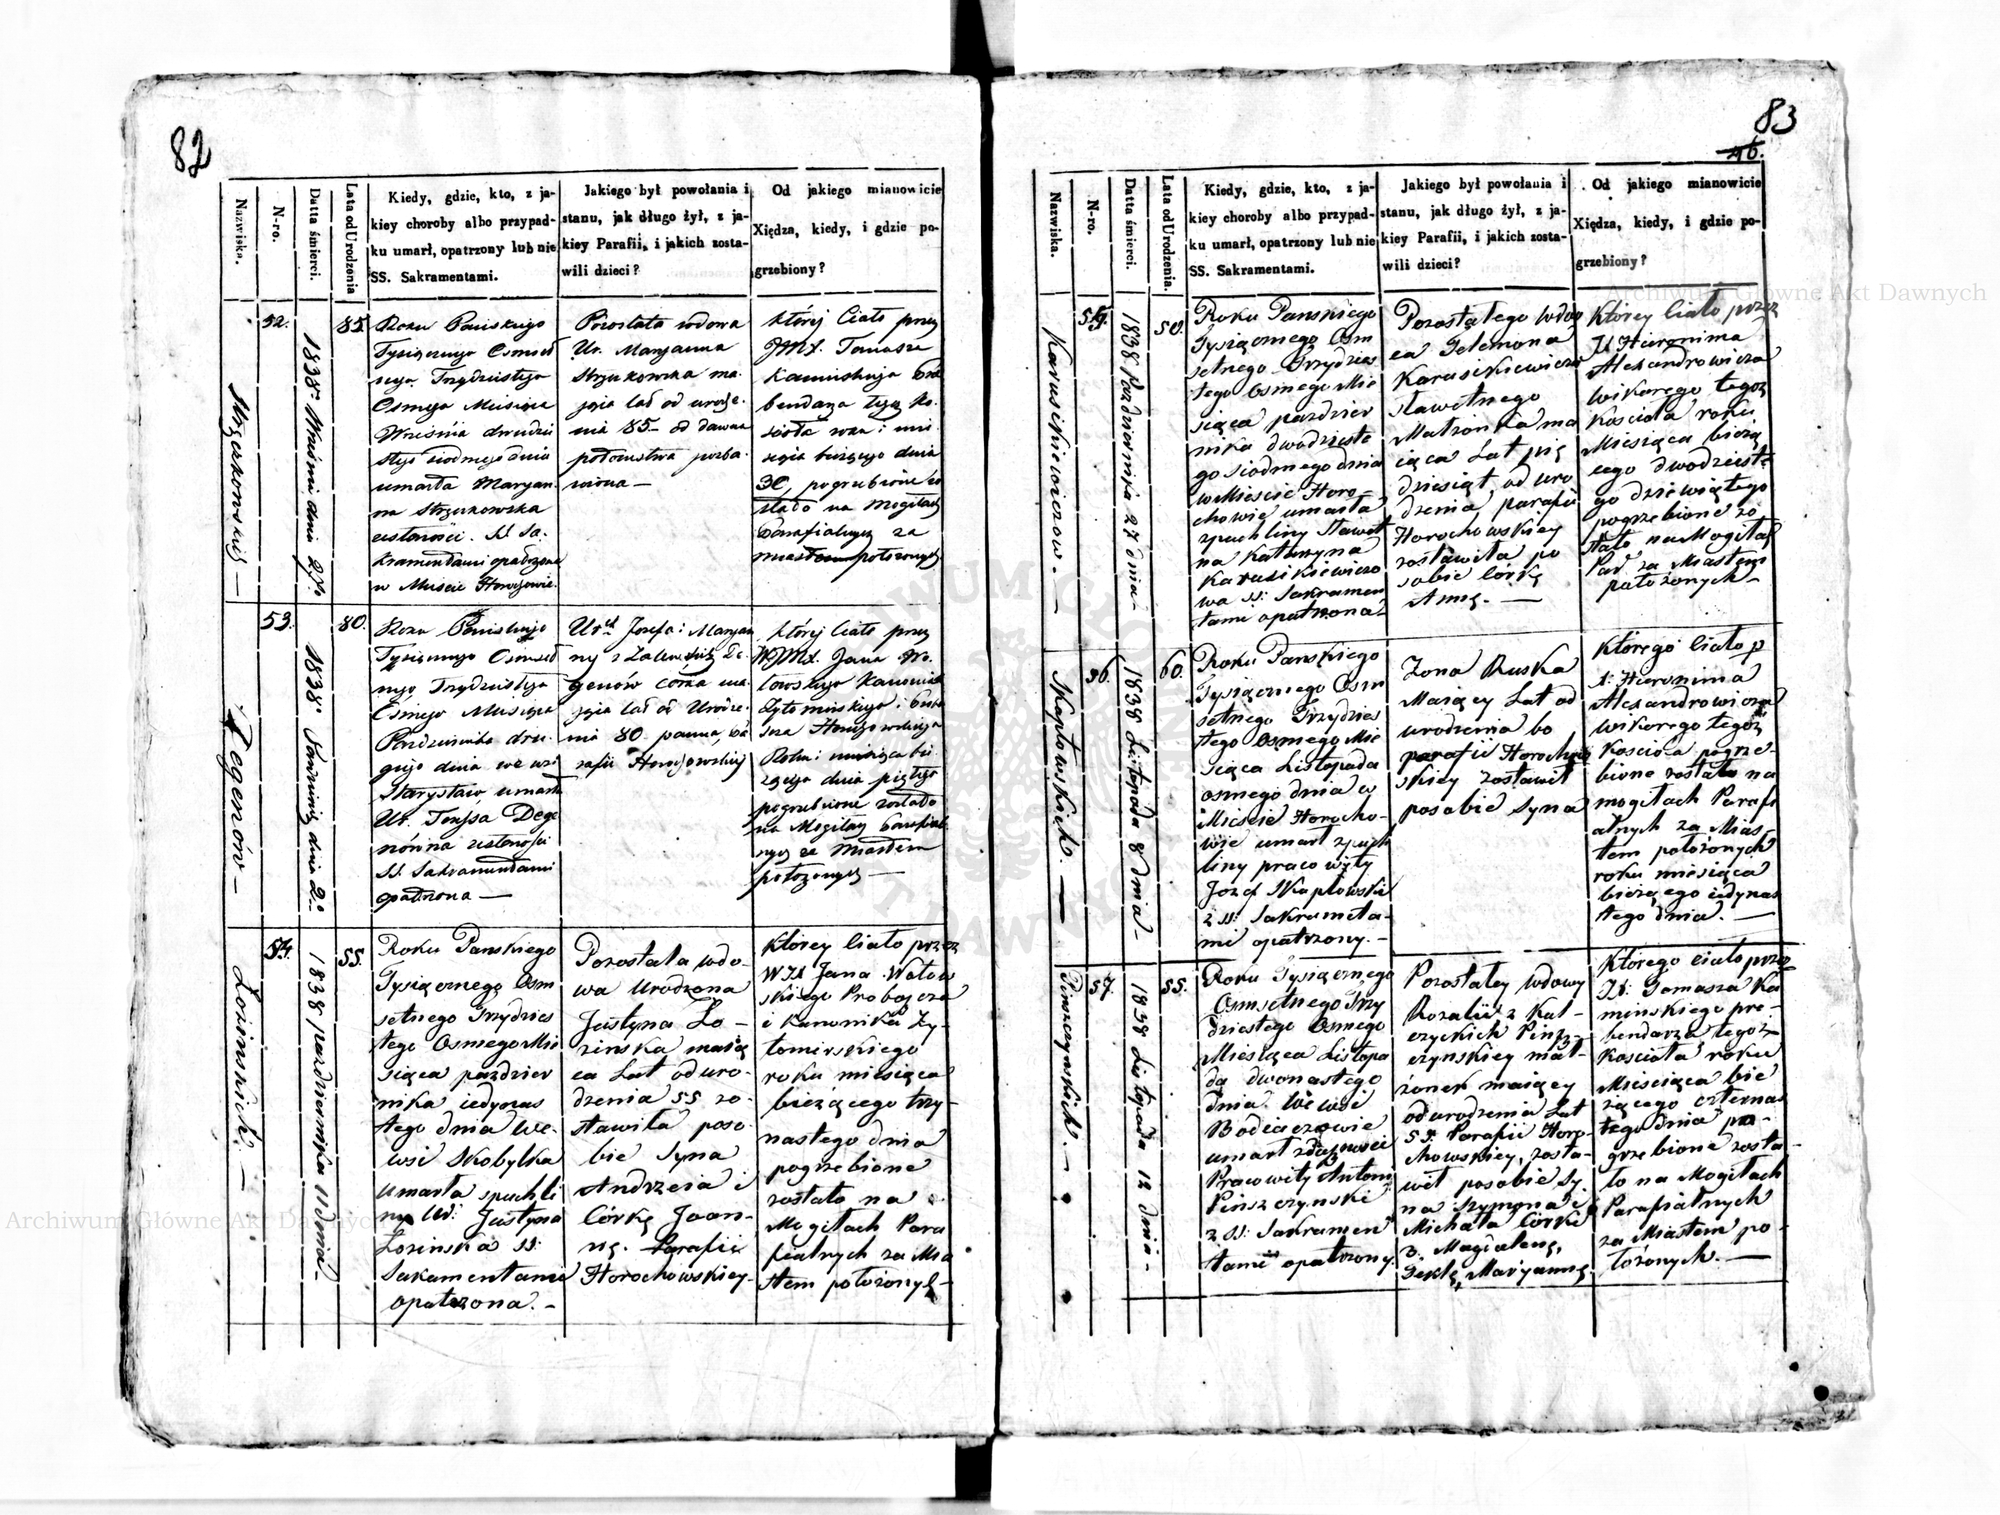 82
Nazwiska.
N-ro.
Datta śmierci.
Lata od Urodzenia
Kiedy, gdzie, kto, z ja-
kiey choroby albo przypad-
ku umarł, opatrzony lub nie
SS. Sakramentami.
Jakiego był powołania i
stanu, jak długo żył, z ja-
kiey Parafii, i jakich zosta-
wili dzieci?
Od jakiego mianowicie
Xiędza, kiedy, i gdzie po-
grzebiony?
52.
85.
Roku Pańskiego
Tysiącznego Osmset
nego Trzydziestego
Osmego Miesiąca
Września dwudzie
stego siodmego dnia
umarła Maryan
na Strzyżkowska
ze starości SS. Sa-
kramentami opatrzona
w Mieście Horochowie.
Pozostała wdowa
Ur. Maryanna
ma
jąca lat od urodze
nia 85 od dawna
której Ciało przez
JMX. Tomasza
Kamińskiego Pre
bendarza tegoż Ko-
ścioła roku i mie
siąca bieżącego dnia
30, pogrzebione zo
stało na Mogiłach
Parafialnych za
miastem położonych
53.
Degenów —
80.
Roku Pańskiego
Tysiącznego Osmset
nego Trzydziestego
Osmego Miesiąca
Października dru-
giego dnia we wsi
umarła
Ur. Teressa Dege
nówna ze starości
SS. Sakramentami
opatrzona —
Józefa i Maryan
ny z Zalewskich De-
genów córka ma-
jąca lat od Urodze-
nia 80 panna, pa
rafii Horochowskiej
której Ciało przez
WJMX. Jana Wo-
łowskiego Kanonika
Żytomirskiego i
Horochowskiego
Roku i miesiąca bie-
żącego dnia piątego
pogrzebione zostało
na Mogiłach Parafial
nych za Miastem
położonych —
54.
Łozinskich. —
1838 pazdziernika 11 dnia —
55.
Roku Panskiego
Tysiącznego Osm
setnego Trzydzies
tego Osmego Mie
siąca pazdzier
nika iedynas
tego dnia we
wsi Skobylka
umarła z puchli
ny Ur: Justyna
Łozinska SS:
Sakamentami
opatrzona. —
Pozostała wdo-
wa Urodzona
Justyna Ło —
zinska maią
ca Lat od uro-
dzenia 55 zo-
stawiła poso-
bie Syna
Andrzeia i
Córkę Joan-
nę. Parafii
Horochowskiey —
Ktorey Ciało przez
WJX Jana Wołow
skiego Proboszcza
i Kanonika Ży-
tomirskiego
roku miesiąca
bieżącego trzy-
nastego dnia
pogrzebione
zostało na
Mogiłach Para
fialnych za Mia
stem położonych —
83
46.
Nazwiska.
N-ro.
Datta śmierci.
Lata od Urodzenia.
Kiedy, gdzie, kto, z ja-
kiey choroby albo przypad-
ku umarł, opatrzony lub nie
SS. Sakramentami.
Jakiego był powołania i
stanu, jak długo żył, z ja-
kiey Parafii, i jakich zosta-
wili dzieci?
Od jakiego mianowicie
Xiędza, kiedy, i gdzie po-
grzebiony?
Karusikiewiczow. —
1838 Pazdziernika 27 dnia —
50.
Roku Panskiego
Tysiącznego Osm
setnego Trzydzies
tego Osmego Mie
siąca pazdzier
nika dwudzieste
go siodmego dnia
w Miescie Horo-
chowie umarła
z puchliny Sławet
na Katarzyna
Karusikiewiczo
wa SS: Sakramen
tami opatrzona —
Pozostałego wdow
ca Filemona
Karusikiewicza
sławetnego
Małżonka ma
iąca Lat pię
dziesiąt, od uro
dzenia, parafii
Horochowskiey
zostawiła po
sobie Córkę
Annę. —
Ktorey Ciało przez
JX Hieronima
Alexandrowicza
wikarego tegoż
Kościoła roku
Miesiąca bieżą
cego dwudzieste
go dziewiątego
pogrzebione zo
stało na Mogiłach
Par za Miastem
położonych —
56.
Skapłowskich. —
1838 Listopada 8 dnia —
60.
Roku Panskiego
Tysiącznego Osm
setnego Trzydzies
tego Osmego Mie
siąca Listopada
osmego dnia w
Miescie Horocho-
wie umarł z puch
liny pracowity
Jozef Skapłowski
z SS: Sakrameta-
mi opatrzony. —
Zona Ruska
Maiący Lat od
urodzenia 60
parafii Horochow
skiey zostawił
posobie Syna
Ktorego Ciało p
X: Hieronima
Alexandrowicza
wikarego tegoż
Kościoła pogrze-
bione zostało na
mogiłach Parafi
alnych za Mias
tem położonych
roku miesiąca
bieżącego iedynas
tego dnia. —
57.
Pinszczynskich. —
1838 Listopada 12 dnia —
55.
Roku Tysiącznego
Osmsetnego Trzy
dziestego Osmego
Miesiąca Listopa
da dwonastego
dnia. we wsi
umarł
Pracowity Antoni
Pinszczynski
z SS: Sakramen
tami opatrzony.
Pozostałey wdowy
Rozalii z
Pinsz-
czynskiey mał-
żonek maiący
od urodzenia Lat
55. Parafii Horo-
chowskiey, zosta-
wił posobie Sy-
na Szymona i
Michała Córki
3. Magdalenę,
Teklę, Maryannę.
Ktorego ciało przez
JX: Tomasza Ka
minskiego pre-
bendarza tegoż
Kościoła roku
Miesiąca bie
żącego czternas
tego dnia po-
grzebione zosta-
ło na Mogiłach
Parafialnych
za Miastem po-
łożonych. —
Archiwum Główne Akt Dawnych
Archiwum Główne Akt Dawnych